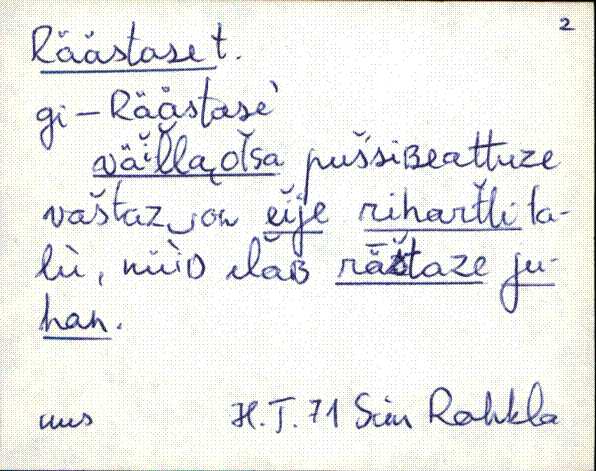 2
Räästase t.
gi – Räästasè
väĭl̆l̆ą ot̆sa pušsiʙeattuze
vaštaz‿on eĭje rihart̆li ta-
lù, nüìᴅ elăʙ rä̆štaze ju-
han.
uus H.T. 71 Sim Rahkla